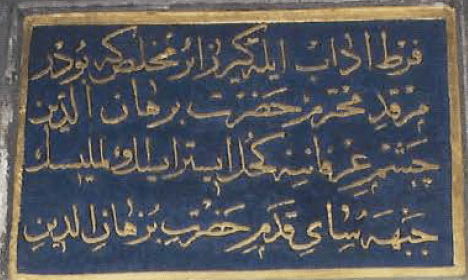 فرط اداب ايله كير زائر مخلص كه بودر
مرقد محترم حضرت برهان الدين
چشم عرفاننه كحل ايستر ايسك اولمليسك
جبهه ساي قدم حضرت برهان الدين